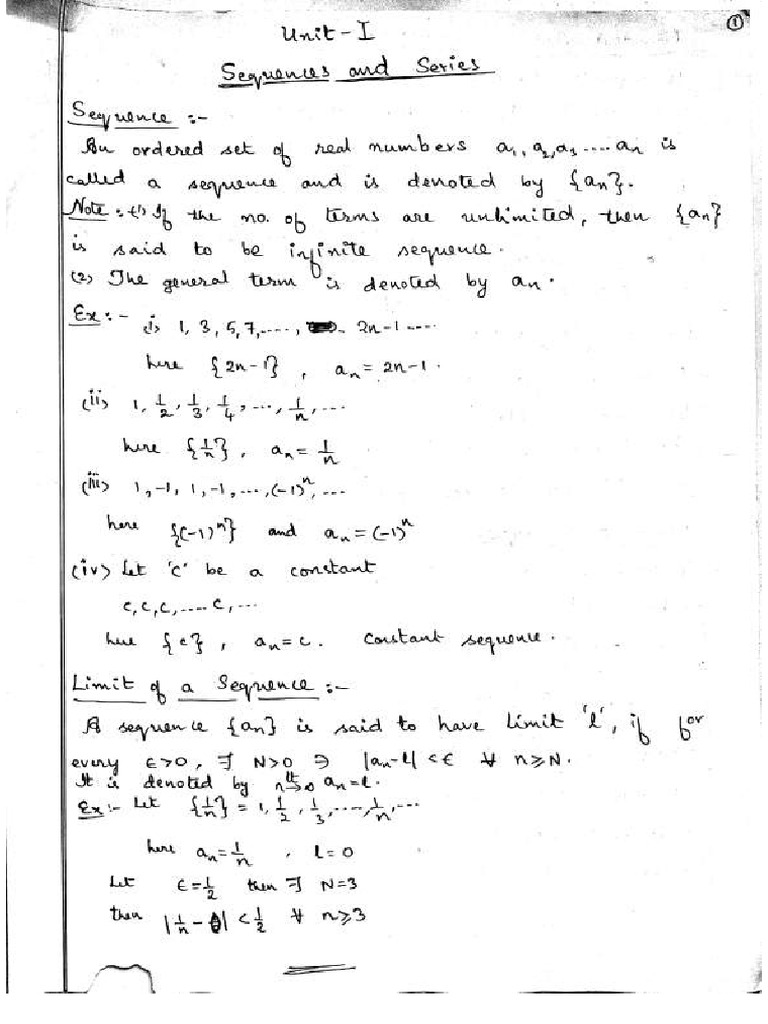 ①
Unit - I
Sequences and Series
Sequence :-
An ordered set of real numbers a₁, a₂, a₃ .... aₙ is
called a sequence and is denoted by {aₙ}.
Note :- (1) If the no. of terms are unlimited, then {aₙ}
is said to be infinite sequence.
(2) The general term is denoted by aₙ.
Ex :- (i) 1, 3, 5, 7, ...., 2n-1 ....
here {2n-1} , aₙ = 2n-1.
(ii) 1, 1/2, 1/3, 1/4, ..., 1/n, ...
here {1/n}, aₙ = 1/n
(iii) 1, -1, 1, -1, ..., (-1)ⁿ, ...
here {(-1)ⁿ} and aₙ = (-1)ⁿ
(iv) Let 'c' be a constant
c, c, c, .... c, ...
here {c} , aₙ = c. Constant sequence.
Limit of a Sequence :-
A sequence {aₙ} is said to have limit 'l', if for
every ϵ>0, ∃ N>0 ∋ |aₙ-l| <ϵ ∀ n≥N.
It is denoted by lt n→0 aₙ=l.
Ex :- Let {1/n} = 1, 1/2, 1/3, ...., 1/n, ...
here aₙ = 1/n , l=0
Let ϵ=1/2 then ∃ N=3
then |1/n - 0| < 1/2 ∀ n≥3